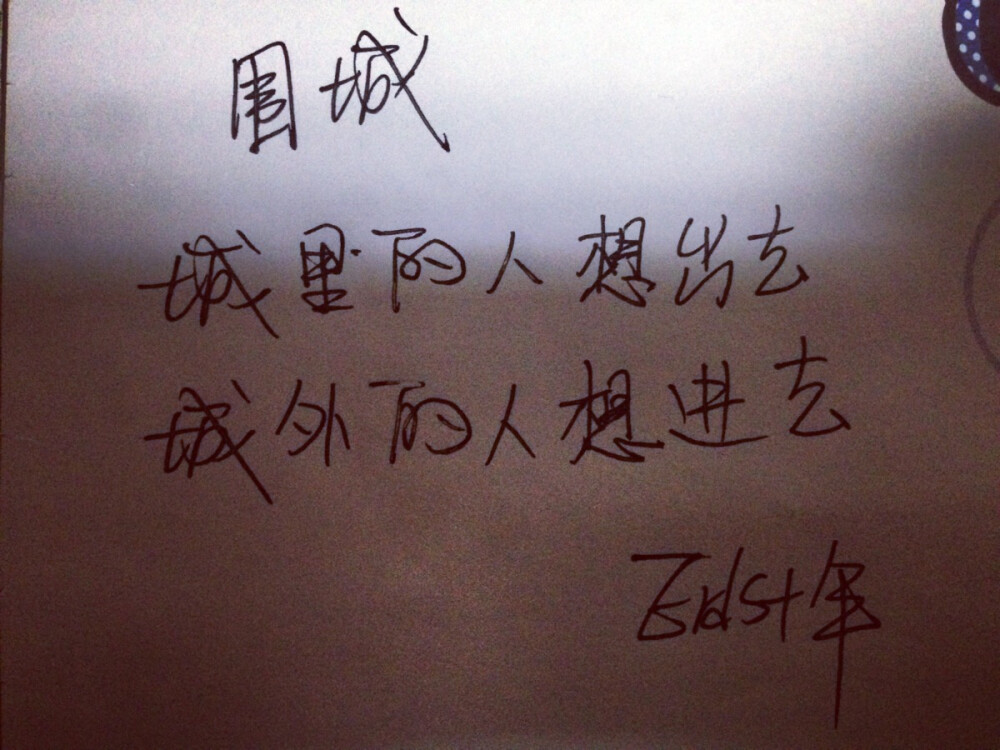 围城
城里的人想出去
城外的人想进去